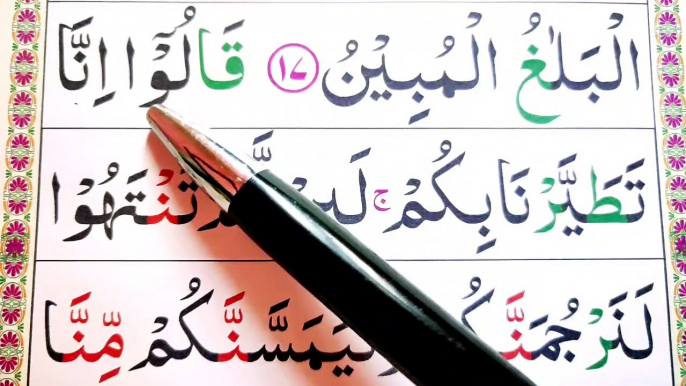 الْبَلٰغُ الْمُبِيْنُ ۝١٧ قَالُوْۤا اِنَّا
تَطَيَّرْنَا بِكُمْ ۚ تَنْتَهُوْا
لَنَرْجُمَنَّكُمْ لَيَمَسَّنَّكُمْ مِّنَّا